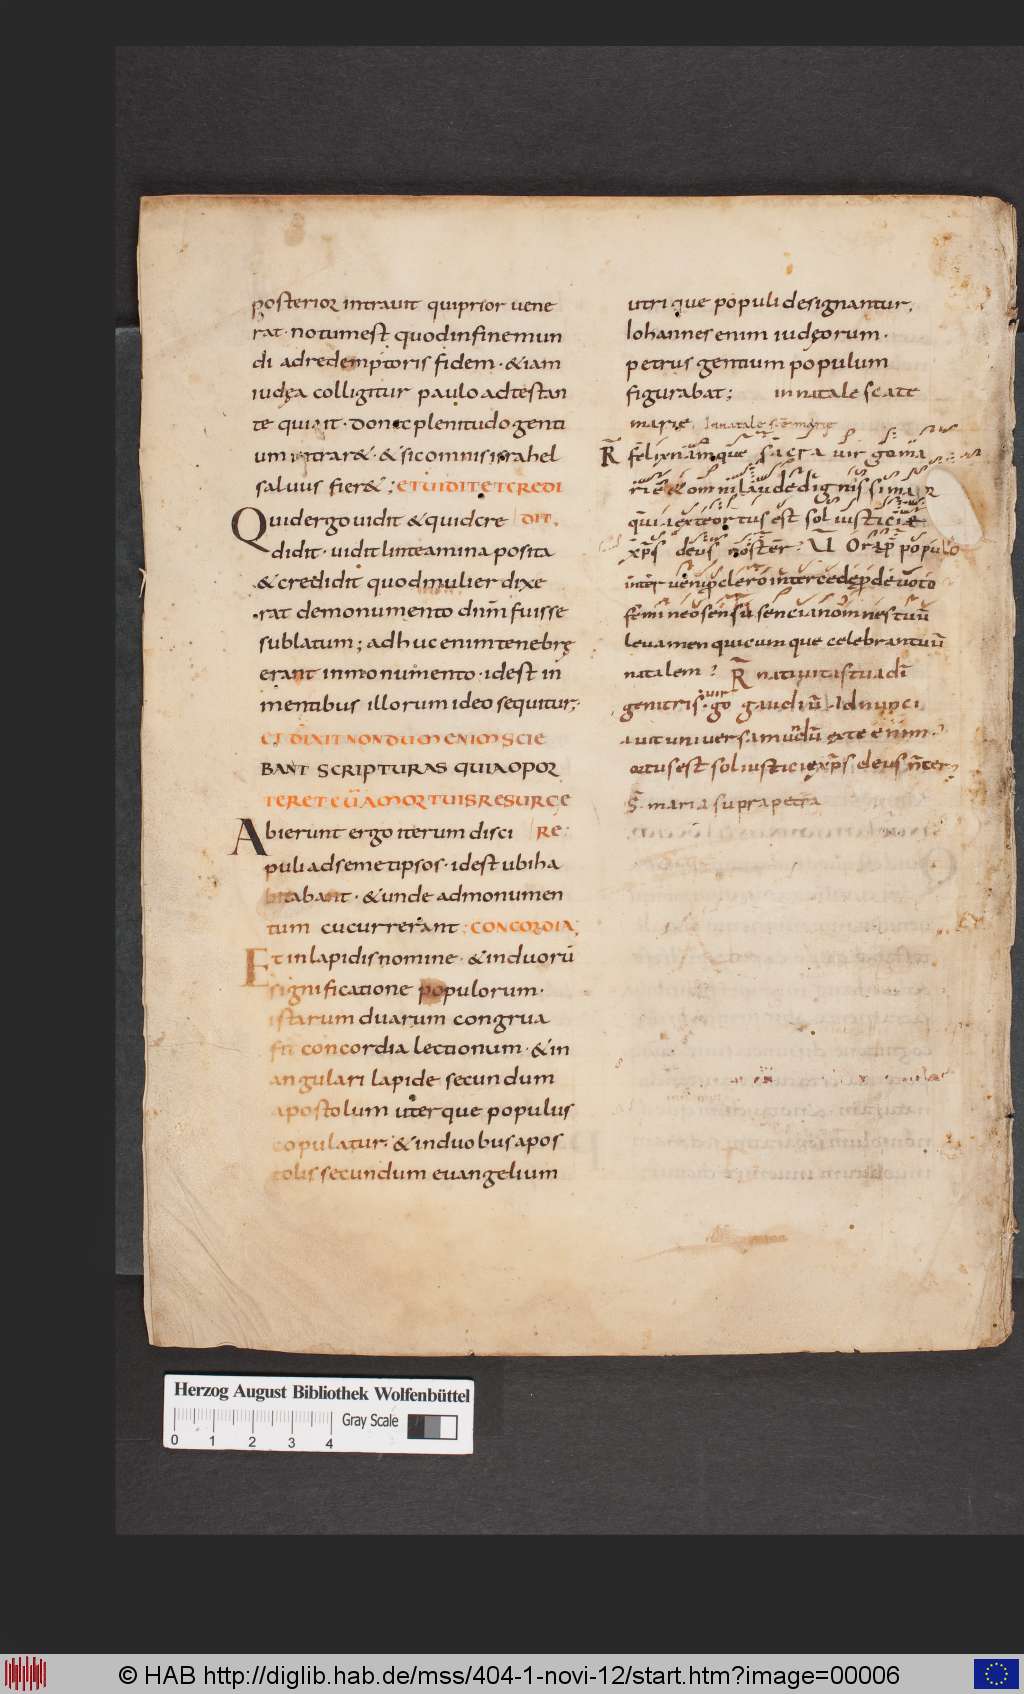 posterior intravit qui prior vene
rat · notum est quod in fine mun
di ad redemptoris fidem · & iam
iudęa colligitur paulo adtestan
te qui ait · donec plenitudo genti
um intrar& · & sic omnis israhel
salvus fier& ; ET UIDIT ET CREDI
Quid ergo vidit & quid cre DIT.
didit · vidit linteamina posita
& credidit quod mulier dixe
rat de monumento dnm̄ fuisse
sublatum ; adhuc enim tenebrę
erant in monumento · id est in
mentibus illorum ideo sequitur ;
ET DIXIT NONDUM ENIM SCIE
BANT SCRIPTURAS QUIA OPOR
TERET EŪ A MORTUIS RESURGE
Abierunt ergo iterum disci RE:
puli ad semetipsos · id est ubi ha
bitabant · & unde ad monumen
tum cucurrerant : CONCORDIA;
Et in lapidis nomine · & in duorū
significatione populorum ·
istarum duarum congrua
fit concordia lectionum · & in
angulari lapide secundum
apostolum uterque populus
copulatur · & in duobus apos
tolis secundum evangelium
utrique populi designantur,
Iohannes enim iudęorum ·
petrus gentium populum
figurabat ; in natale scāte
marie. In natale scē marię
R̄ felix namque sacra virgo ma
rie & omni laude dignissima
quia ex te ortus est sol iusticię
xp̄s deus noster : V Ora p̄ populo
interveni p̄ clero intercede p̄ devoto
femineo sensu senciant omnes tuū
levamen quicumque celebrant tuū
natalem ? R̄ nativitas tua dī
genitrix virgo gaudiū adnunci
avit universo mundū ex te enim ·
ortus est sol iusticię xp̄s deus n̄ter
S̄ maria supra petra
Herzog August Bibliothek Wolfenbüttel
Gray Scale
0 1 2 3 4
© HAB http://diglib.hab.de/mss/404-1-novi-12/start.htm?image=00006